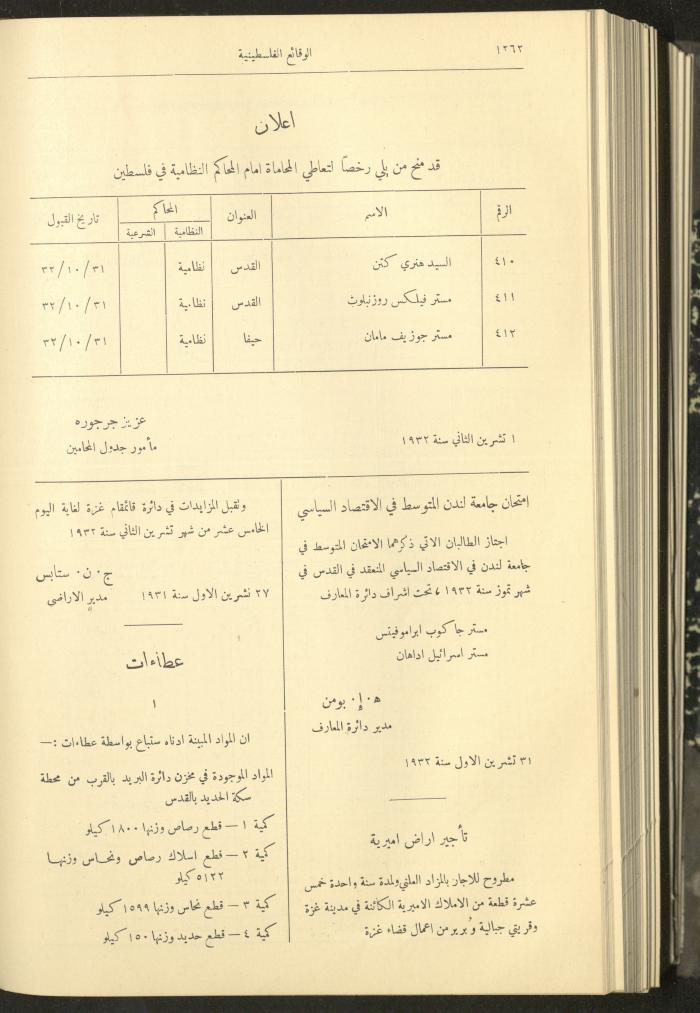 ١٢٦٢
الوقائع الفلسطينية
اعلان
قد منح من يلي رخصاً لتعاطي المحاماة امام المحاكم النظامية في فلسطين
الرقم الاسم العنوان المحاكم تاريخ القبول
النظامية الشرعية
٤١٠ السيد هنري كتن القدس نظامية ٣٢/١٠/٣١
٤١١ مستر فيلكس روزنبلوث القدس نظامية ٣٢/١٠/٣١
٤١٢ مستر جوزيف مامان حيفا نظامية ٣٢/١٠/٣١
عزيز جرجوره
مأمور جدول المحامين
١ تشرين الثاني سنة ١٩٣٢
امتحان جامعة لندن المتوسط في الاقتصاد السياسي
اجتاز الطالبان الاتي ذكرهما الامتحان المتوسط في
جامعة لندن في الاقتصاد السياسي المنعقد في القدس في
شهر تموز سنة ١٩٣٢، تحت اشراف دائرة المعارف
مستر جاكوب ابراموفيتس
مستر اسرائيل اداهان
ه٠ إ٠ بومن
مدير دائرة المعارف
٣١ تشرين الاول سنة ١٩٣٢
تأجير اراض اميرية
مطروح للاجار بالمزاد العلني ولمدة سنة واحدة خمس
عشرة قطعة من الاملاك الاميرية الكائنة في مدينة غزة
وقريتي جبالية وبرير من اعمال قضاء غزة
وتقبل المزايدات في دائرة قائمقام غزة لغاية اليوم
الخامس عشر من شهر تشرين الثاني سنة ١٩٣٢
ج٠ ن٠ ستابس
مدير الاراضي
٢٧ تشرين الاول سنة ١٩٣١
عطاءات
١
ان المواد المبينة ادناه ستباع بواسطة عطاءات :—
المواد الموجودة في مخزن دائرة البريد بالقرب من محطة
سكة الحديد بالقدس
كمية ١ — قطع رصاص وزنها ١٨٠٠ كيلو
كمية ٢ — قطع اسلاك رصاص ونحاس وزنها
٥١٢٢ كيلو
كمية ٣ — قطع نحاس وزنها ١٥٩٩ كيلو
كمية ٤ — قطع حديد وزنها ١٥٠ كيلو